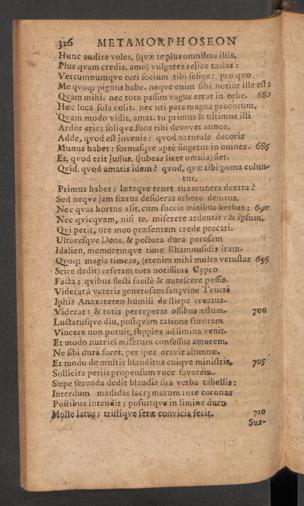 326 METAMORPHOSEON
Hunc audire voles, (qvæ te plus omnibus illis,
Plus qvam credis, amo) vulgares rejice tædas:
Vertumnumqve tori socium tibi selige: pro qvo
Me qvoq; pignus habe. neqve enim sibi notior ille est;
Qvam mihi. nec toto passim vagus errat in orbe. 680
Hæc loca sola colit. nec uti pars magna procorum,
Qvam modo vidit, amat. tu primus & ultimus illi
Ardor eris: soliqve suos tibi devovet annos.
Adde, qvod est juvenis: qvod naturale decoris
Munus habet: formasqve aptè fingetur in omnes. 685
Et, qvod erit jussus, (jubeas licet omnia) fiet.
Qvid, qvod amatis idem? qvod, qvæ tibi poma colun-
tur,
Primus habet: lætaqve tenet tua munera dextra?
Sed neqve jam fœtus desiderat arbore demtos,
Nec qvas hortus alit, cum succis mitibus herbas; 690
Nec qvicqvam, nisi te. miserere ardentis: & ipsum,
Qvi petit, ore meo præsentem crede precari.
Ultoresqve Deos, & pectora dura perosam
Idalien, memoremqve time Rhamnusidis iram.
Qvoq; magis timeas, (etenim mihi multa vetustas 695
Scire dedit) referam tota notissima Cypro
Facta; qvibus flecti facilè & mitescere possis.
Viderat à veteris generosam sangvine Teucri
Iphis Anaxareten humili de stirpe creatus.
Viderat: & totis perceperat ossibus æstum. 700
Luctatusqve diu, postqvam ratione furorem
Vincere non potuit, supplex ad limina venit.
Et modo nutrici miserum confessus amorem,
Ne sibi dura foret, per spes oravit alumnæ.
Et modo de multis blanditus cuiqve ministris, 705
Sollicita petiit propensum voce favorem.
Sæpe ferenda dedit blandis sua verba tabellis:
Interdum madidas lacrymarum rore coronas
Postibus intendit; posuitqve in limine duro
Molle latus; tristiqve seræ convicia fecit. 710
Sur-